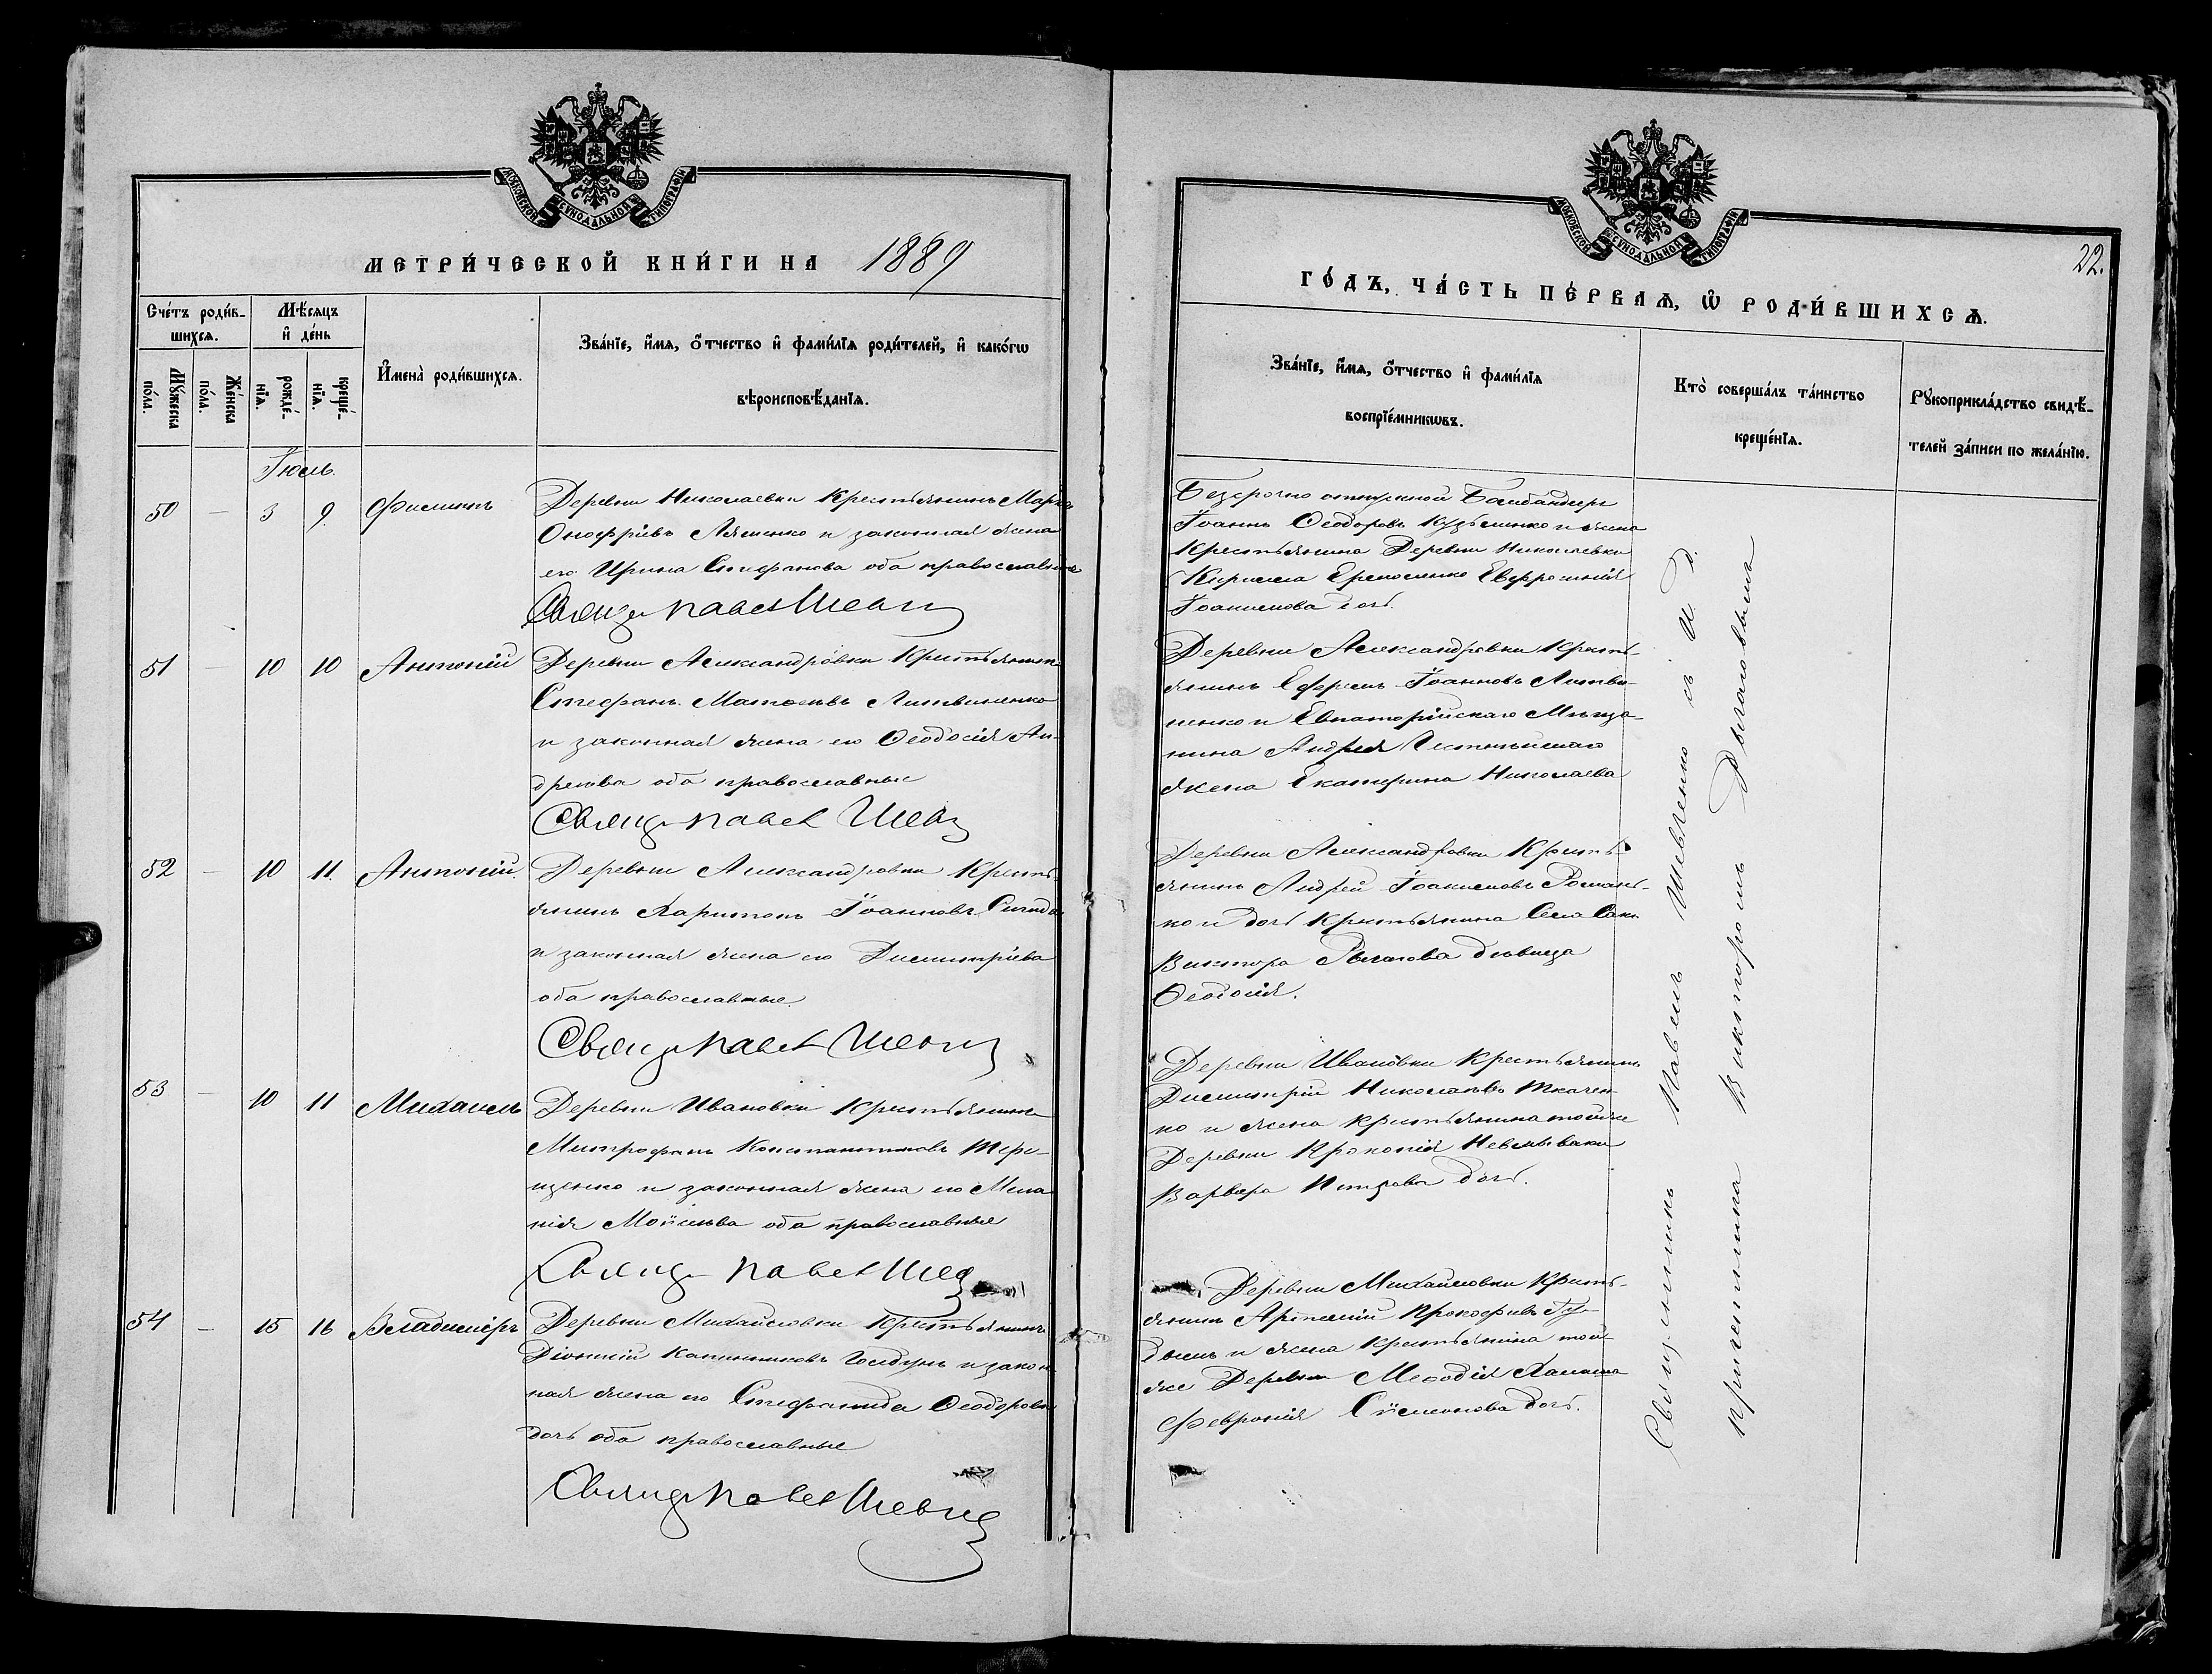 МОСКОВСКОЙ СѴНОДАЛЬНОЙ ТИПОГРАФІИ
МЕТРИ́ЧЕСКОЙ КНИ́ГИ НА 1889
Сче́тъ роди́в-
шихсѧ.
Мѣ́сѧцъ
и҆ де́нь
Мꙋ́жеска
по́ла.
Же́нска
по́ла.
рожде́-
нїѧ.
креще́-
нїѧ.
И҆мена̀ роди́вшихсѧ.
Зва́нїе, и҆́мѧ, ѻ҆́тчество и҆ фами́лїѧ роди́телей, и҆ како́гѡ
вѣроисповѣ́данїѧ.
Іюль.
50 — 3 9 Филиппъ Деревни Николаевки Крестьянинъ Марко
Онофріевъ Ляшенко и законная жена
его Ирина Стефанова оба православные
Священ Павел Шевч
51 — 10 10 Антоній Деревни Александровки Крестьянинъ
Стефанъ Матѳеевъ Литвиненко
и законная жена его Ѳеодосія Ан-
дреева оба православные
Священ Павел Шев
52 — 10 11. Антоній. Деревни Александровки Кресть-
янинъ Харитонъ Іоанновъ
и законная жена его Димитріева
оба православные.
Священ Павел Шев
53 — 10 11 Михаилъ Деревни Ивановки Крестьянинъ
Митрофанъ Константиновъ Тере-
щенко и законная жена его Мела
нія Моисеева оба православные
Священ Павел Шев
54 — 15 16 Владиміръ Деревни Михайловки Крестьянинъ
Діонисій и закон
ная жена его Стефанида Ѳеодорова
дочь оба православные
Священ Павел Шевч
МОСКОВСКОЙ СѴНОДАЛЬНОЙ ТИПОГРАФІИ
22.
ГО́ДЪ, ЧА́СТЬ ПЕ́РВАѦ, Ѡ҆ РОДИ́ВШИХСѦ.
Зва́нїе, и҆́мѧ, ѻ҆́тчество и҆ фами́лїѧ
воспрїе́мникѡвъ.
Кто̀ соверша́лъ та́инство
креще́нїѧ.
Рꙋкоприкла́дство свидѣ́-
телей за́писи по жела́нїю.
Безсрочно отпускной Бомбандиръ
Іоаннъ Ѳеодоровъ Кузьменко и жена
Крестьянина Деревни Николаевки
Кирилла Ермоленко Евфросинія
Іоакимова дочь.
Деревни Александровки Кресть-
янинъ Ефремъ Іоанновъ Литви-
ненко и Евпаторійскаго Мѣща-
нина Андрея
жена Екатерина Николаева
Деревни Александровки Кресть-
янинъ Андрей Іоакимовъ Романь-
ко и дочь Крестьянина Села Саки
Виктора дѣвица
Ѳеодосія.
Деревни Ивановки Крестьянинъ
Димитрій Николаевъ Ткачен
ко и жена крестьянина тойже
Деревни Прокопія
Варвара Петрова дочь.
Деревни Михайловки Кресть-
янинъ Прокофіевъ
и жена Крестьянина той-
же Деревни Меѳодія
Февронія Симеонова дочь.
Священникъ Павелъ Шевченко съ И. Д.
Причетника Викторомъ